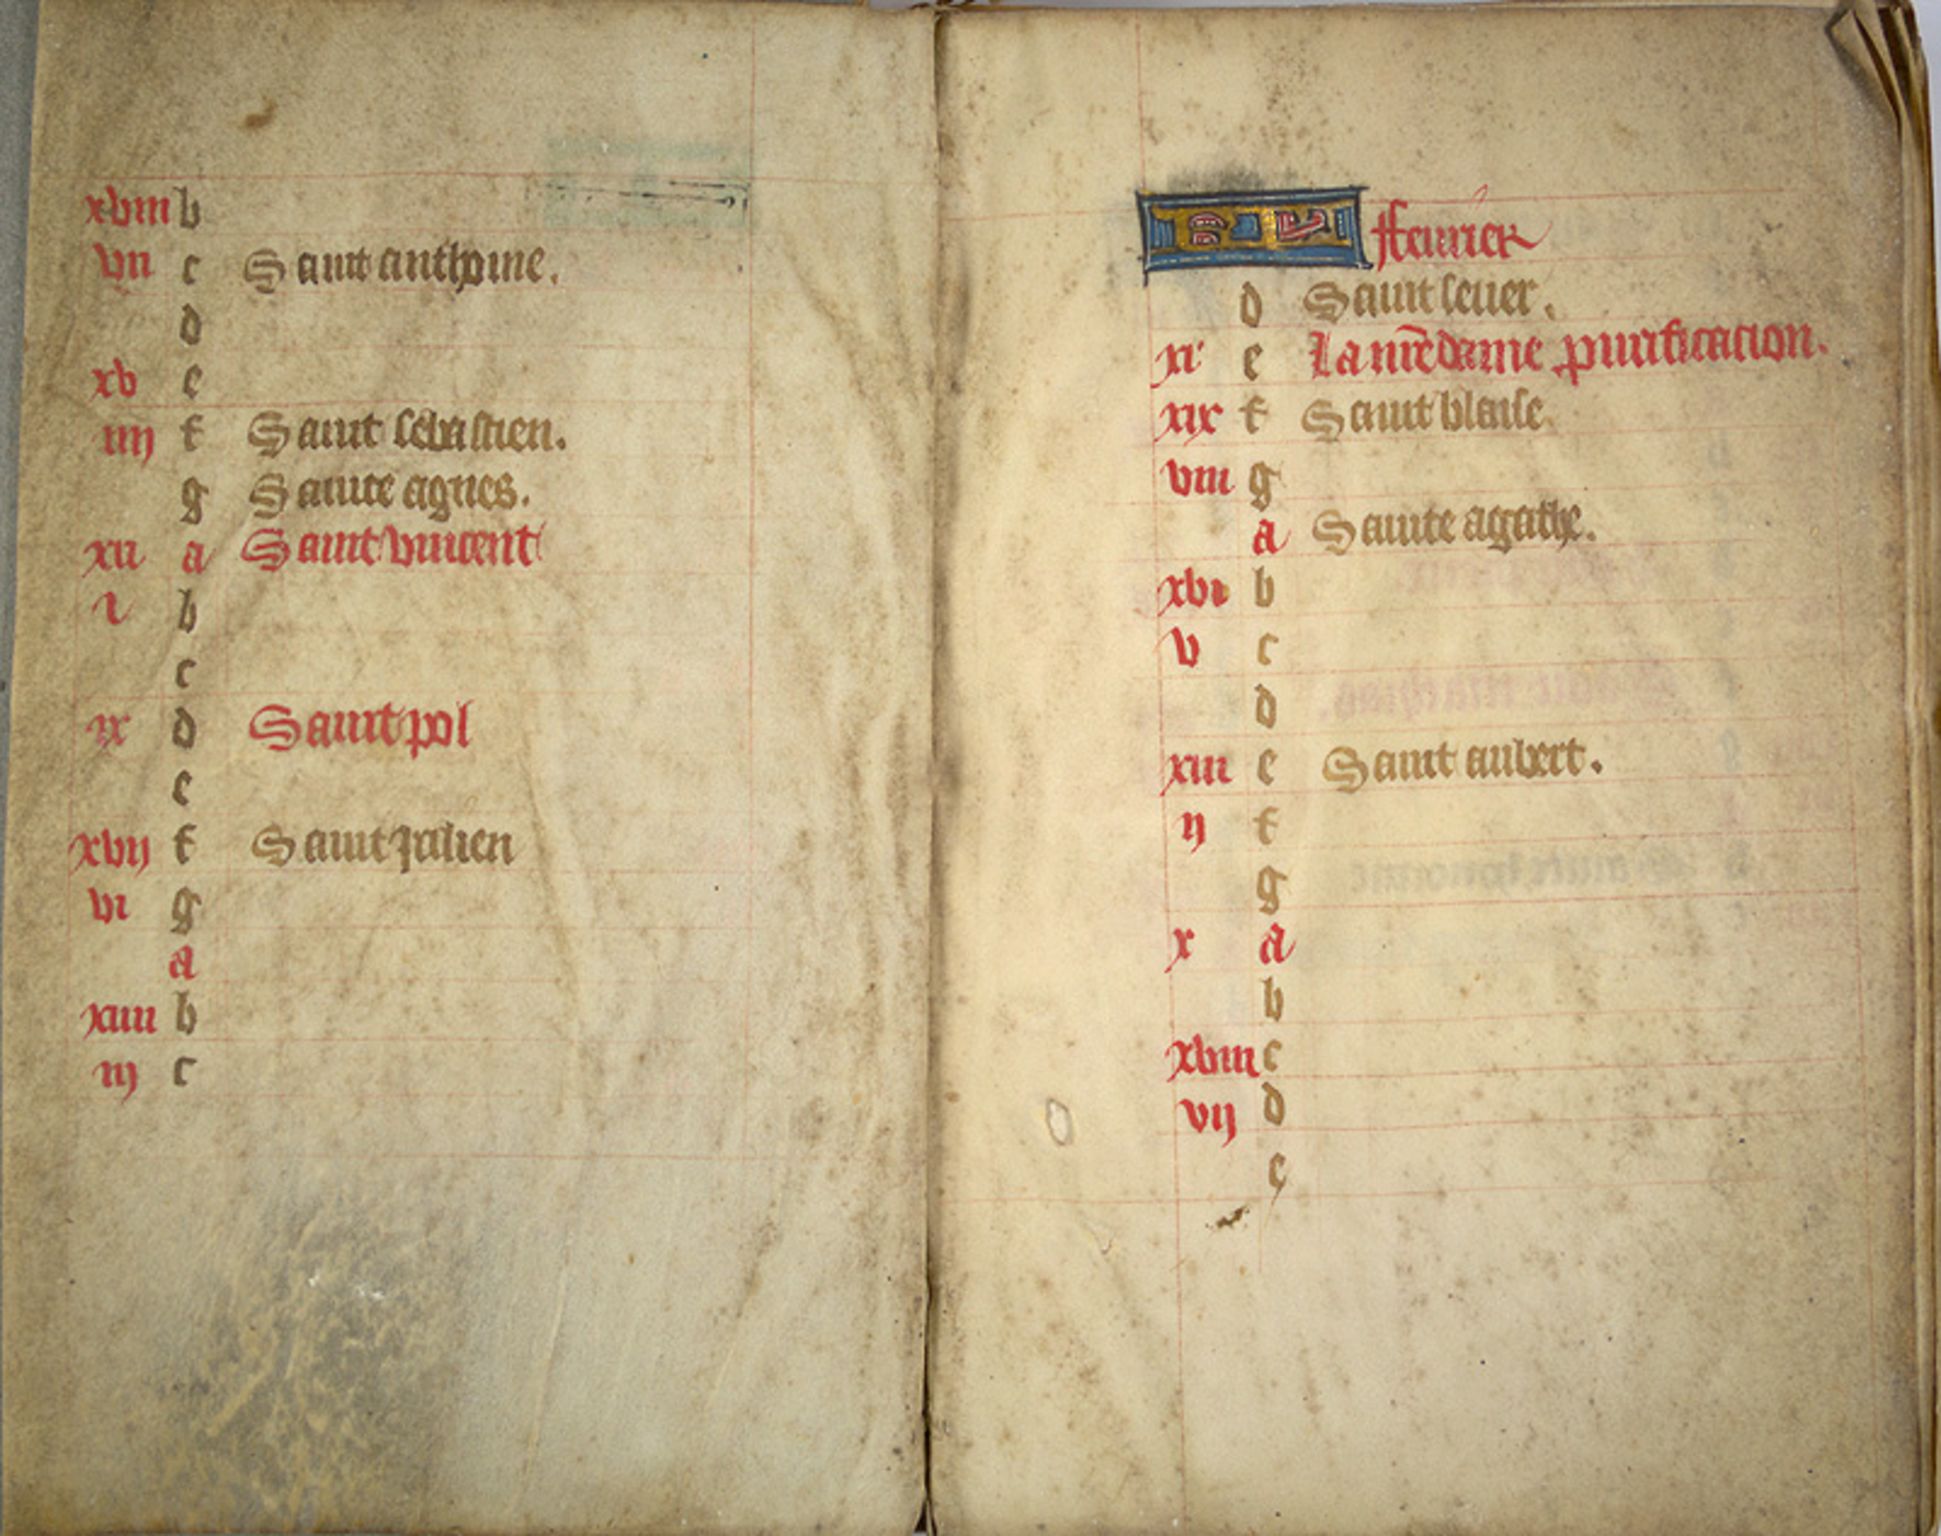 xviii b
vii c Saint anthoine.
d
xv e
iiij f Saint sebastien.
g Sainte agnes.
xii a Saint vincent
i b
c
ix d Saint pol
e
xvij f Saint julien
vi g
a
xiiii b
iij c
KL feurier
d Saint seuer.
xi e La nr̃e dame purificacion.
xix f Saint blaise.
viii g
a Sainte agathe.
xvi b
v c
d
xiii e Saint aubert.
ij f
g
x a
b
xviii c
vij d
e